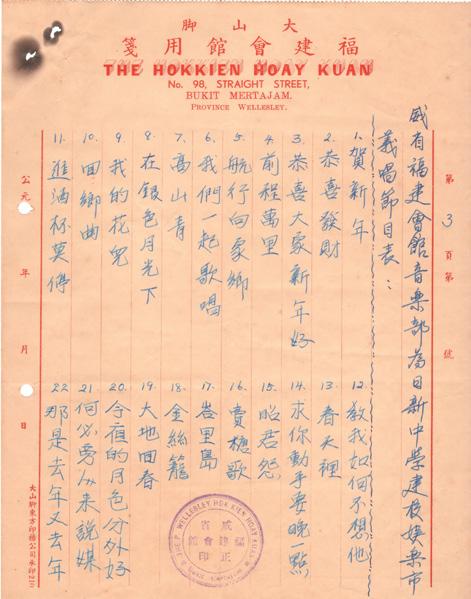 大山脚
福建會館用箋
THE HOKKIEN HOAY KUAN
No. 98, STRAIGHT STREET,
BUKIT MERTAJAM.
PROVINCE WELLESLEY.
第3頁第 號
威省福建會館音樂部為日新中學建校娛樂市
義唱節目表：
1. 賀新年
2. 恭喜發財
3. 恭喜大家新年好
4. 前程萬里
5. 航行向家鄉
6. 我們一起歌唱
7. 高山青
8. 在銀色月光下
9. 我的花兒
10. 回鄉曲
11. 進酒杯莫停
12. 教我如何不想他
13. 春天裡
14. 求你動手要晚一點
15. 昭君怨
16. 賣糖歌
17. 峇里島
18. 金絲籠
19. 大地回春
20. 今宵的月色分外好
21. 何必勞人來說媒
22. 那是去年又去年
公元 年 月 日
THE P. WELLESLEY HOKKIEN HOAY KUAN
威省
福建會館
正印
大山脚東方印務公司承印